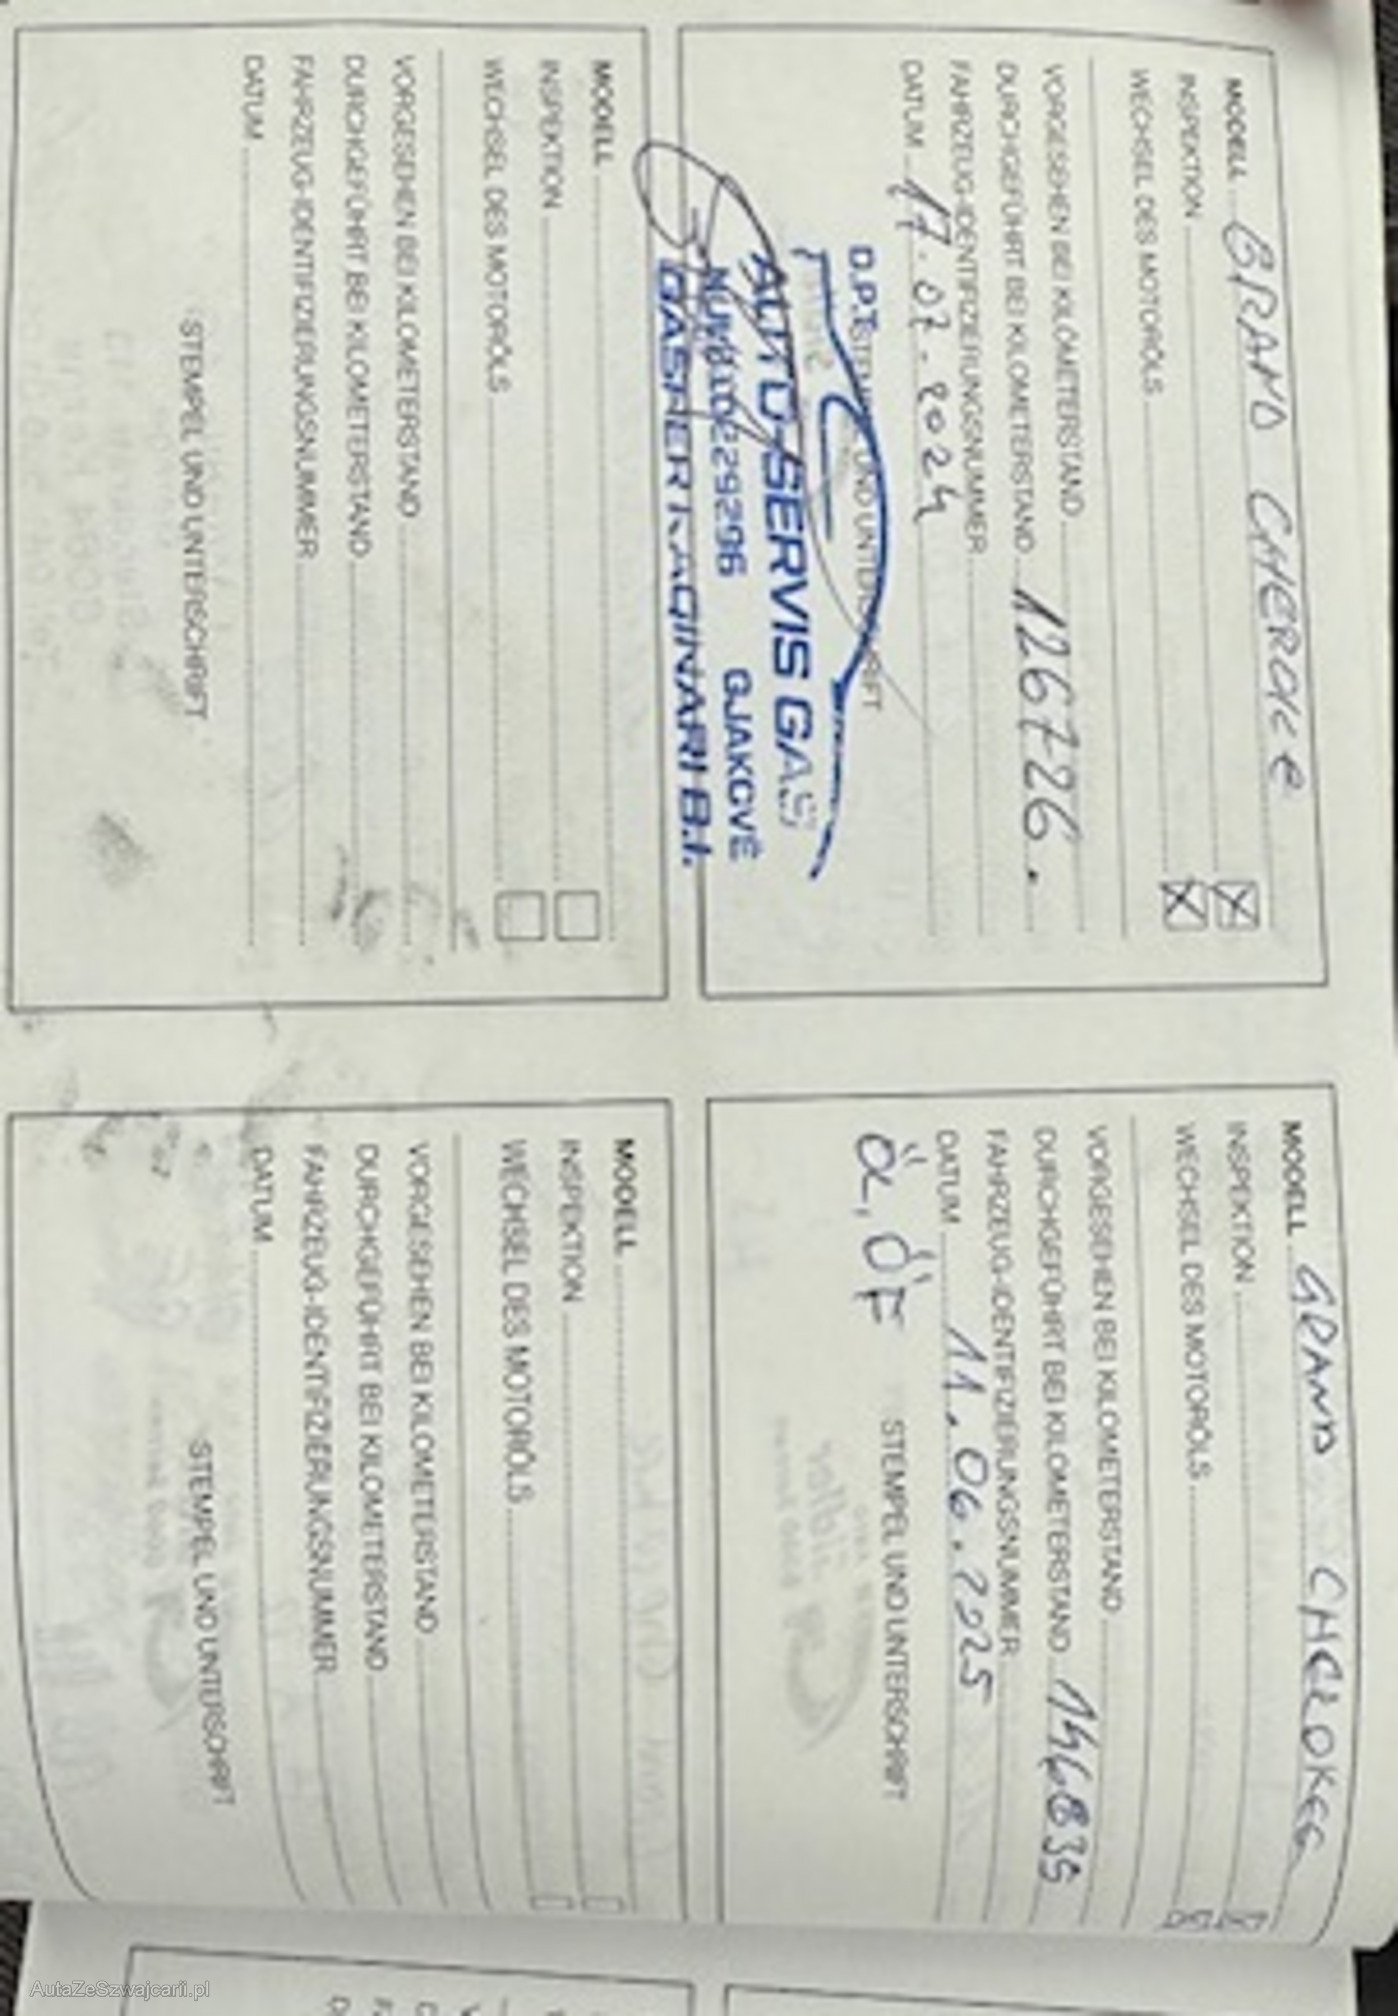 MODELL GRAND CHEROKE
INSPEKTION
WECHSEL DES MOTORÖLS
VORGESEHEN BEI KILOMETERSTAND
DURCHGEFÜHRT BEI KILOMETERSTAND 126726.
FAHRZEUG-IDENTIFIZIERUNGSNUMMER
DATUM 17.07.2024
STEMPEL UND UNTERSCHRIFT
D.P.T.
AUTO-SERVIS GAS
GJAKOVË
B.I.
MODELL
INSPEKTION
WECHSEL DES MOTORÖLS
VORGESEHEN BEI KILOMETERSTAND
DURCHGEFÜHRT BEI KILOMETERSTAND
FAHRZEUG-IDENTIFIZIERUNGSNUMMER
DATUM
STEMPEL UND UNTERSCHRIFT
MODELL GRAND CHEROKEE
INSPEKTION
WECHSEL DES MOTORÖLS
VORGESEHEN BEI KILOMETERSTAND
DURCHGEFÜHRT BEI KILOMETERSTAND
FAHRZEUG-IDENTIFIZIERUNGSNUMMER
DATUM 11.06.2025
STEMPEL UND UNTERSCHRIFT
MODELL
INSPEKTION
WECHSEL DES MOTORÖLS
VORGESEHEN BEI KILOMETERSTAND
DURCHGEFÜHRT BEI KILOMETERSTAND
FAHRZEUG-IDENTIFIZIERUNGSNUMMER
DATUM
STEMPEL UND UNTERSCHRIFT
AutaZeSzwajcarii.pl